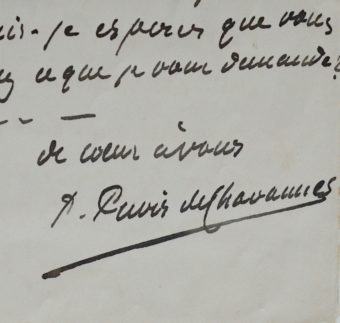 je espères que vous
ce que je vous demande?
de cœur à vous
P. Puvis de Chavannes